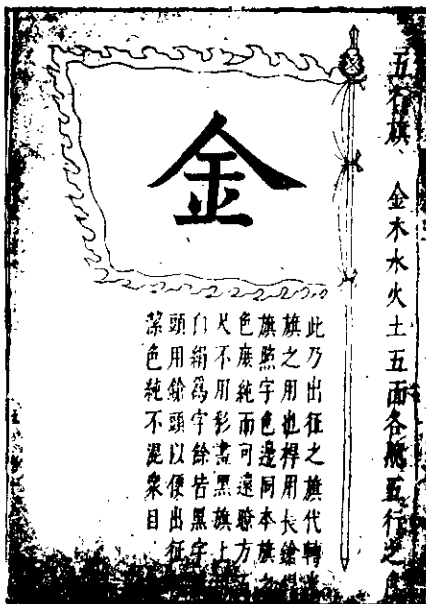 五行旗、金木水火土五面各肖五行之色
金
此乃出征之旗代轉
旗之用也桿用長鎗桿
旗照字色邊同本旗
色庶純而可遠瞭方五
尺不用彩畫黑旗上
白絹爲字餘皆黑字
頭用鎗頭以便出征
潔色純不混衆目